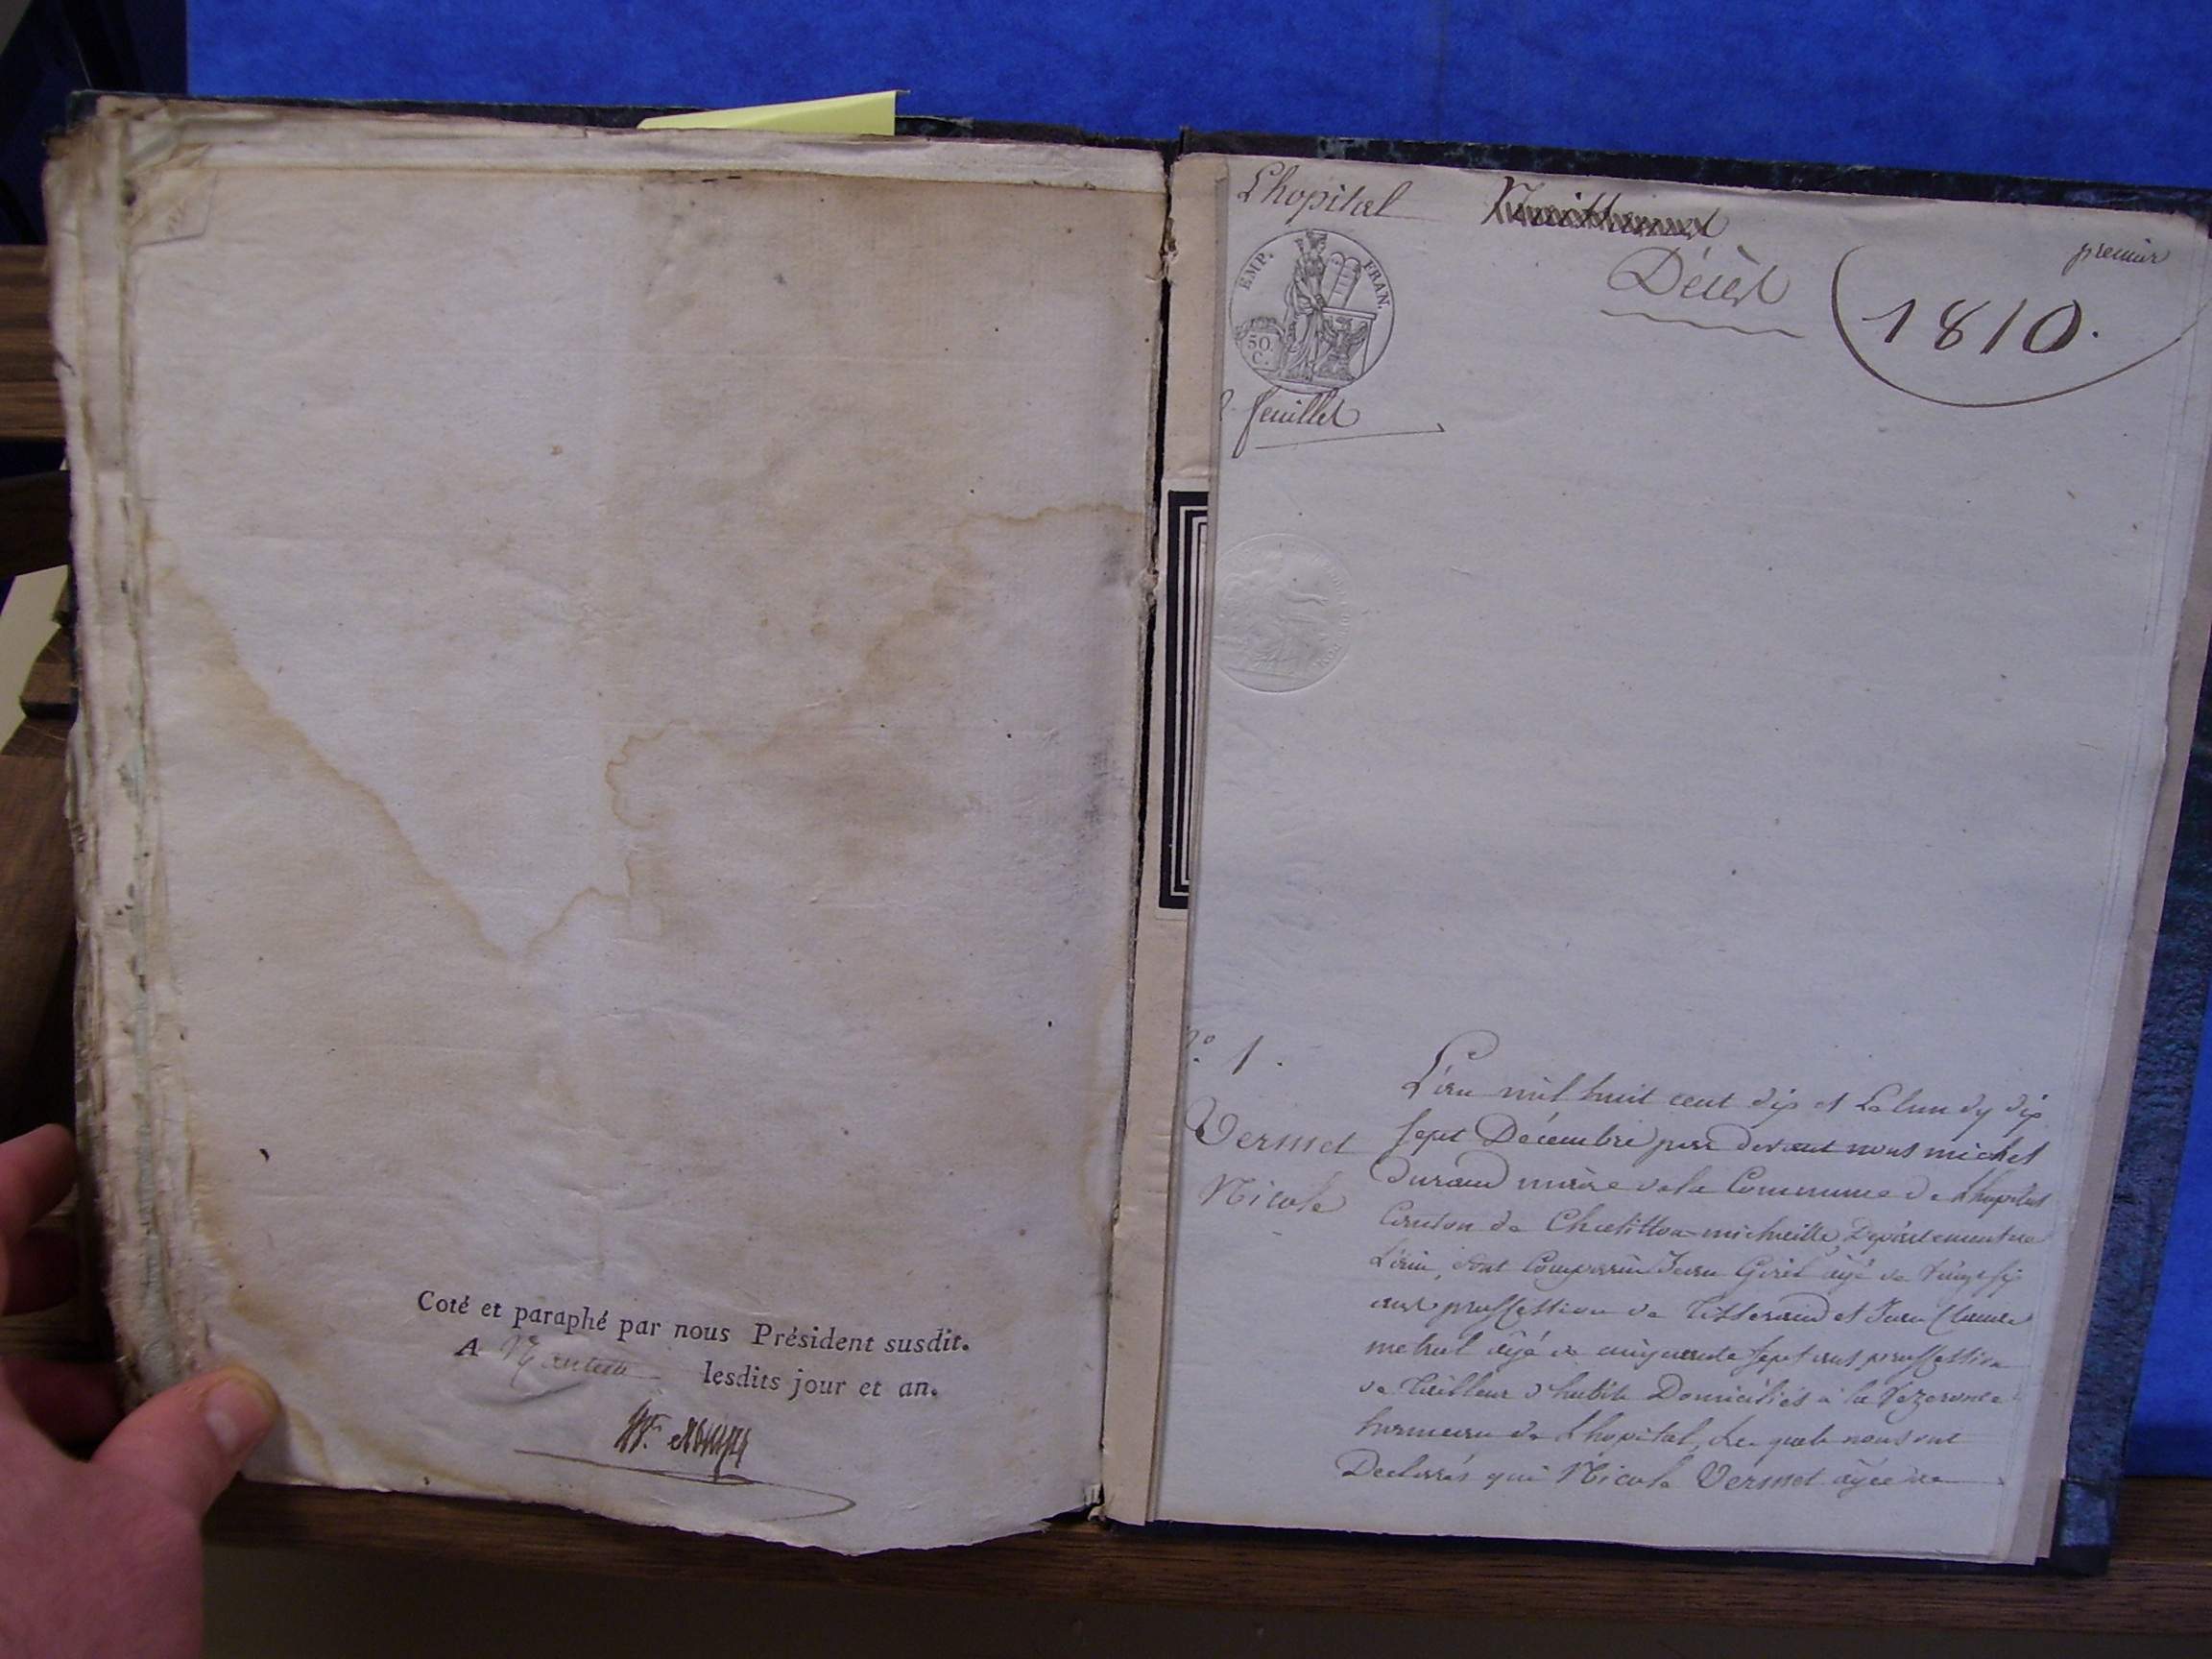 Coté et paraphé par nous Président susdit.
A Nantua lesdits jour et an.
Lhopital
Décès
premier
1810.
EMP. FRAN.
50. C.
feuillet
N.º 1.
Vermet
Nicole
L'an mil huit cent dix et Le lundy dix
sept Décembre par devant nous michel
Durand maire de la Commune de Lhopital
Canton de Chatillon-michaille, Departement de
L'ain, sont Comparu Jean Girel âgé de
ans proffession de Tisserand et Jean Claude
âgé de cinquante sept ans proffession
de Tailleur d'habits Domiciliés à la Vezeronce
hameau de Lhopital, Lesquels nous ont
Declarés que Nicole Vermet âgée de